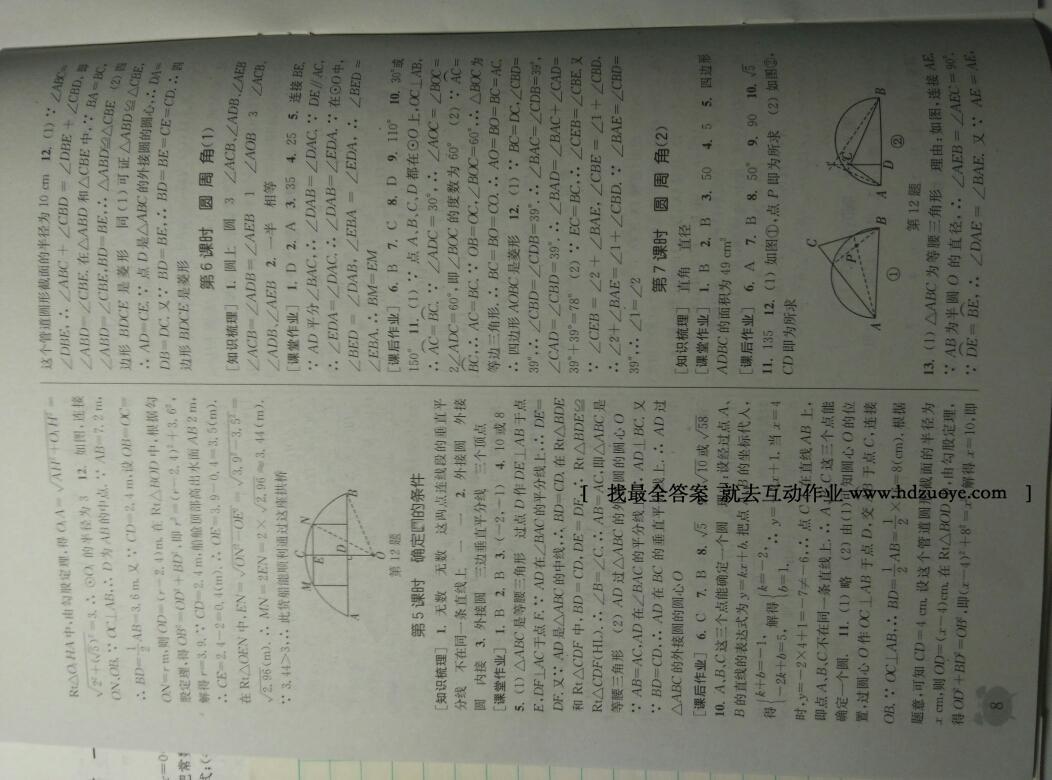 Rt△O₁HA中,由勾股定理,得O₁A=√AH²+O₁H²=
√2²+(√5)²=3,∴⊙O₁的半径为3 12. 如图,连接
ON、OB. ∵OC⊥AB,∴D为AB的中点. ∵AB=7.2 m,
∴BD=1/2AB=3.6 m. 又∵CD=2.4 m,设OB=OC=
ON=r m,则OD=(r-2.4)m. 在Rt△BOD中,根据勾
股定理,得OB²=OD²+BD²,即r²=(r-2.4)²+3.6²,
解得r=3.9. ∵CD=2.4 m,船舱顶部高出水面AB 2 m,
∴CE=2.4-2=0.4(m).∴OE=r-CE=3.9-0.4=3.5(m).
在Rt△OEN中,EN=√ON²-OE²=√3.9²-3.5²=
√2.96(m).∴MN=2EN=2×√2.96≈3.44(m).
∵3.44>3,∴此货船能顺利通过这座拱桥
M C N
E
A D B
O
第12题
第5课时 确定圆的条件
[知识梳理] 1. 无数 无数 这两点连线段的垂直平
分线 不在同一条直线上 一 一 2. 外接圆 外接
圆 内接 3. 外接圆 三边垂直平分线 三个顶点
[课堂作业] 1. B 2. B 3. (-2,-1) 4. 10或8
5. (1) △ABC是等腰三角形 过点D作DE⊥AB于点
E,DF⊥AC于点F. ∵AD在∠BAC的平分线上,∴DE=
DF. 又∵AD是△ABC的中线,∴BD=CD. 在Rt△BDE
和Rt△CDF中,BD=CD,DE=DF,∴Rt△BDE≌
Rt△CDF(HL).∴∠B=∠C.∴AB=AC,即△ABC是
等腰三角形 (2) AD过△ABC的外接圆的圆心O
∵AB=AC,AD在∠BAC的平分线上,∴AD⊥BC. 又
∵BD=CD,∴AD在BC的垂直平分线上.∴AD过
△ABC的外接圆的圆心O
[课后作业] 6. C 7. B 8. √5 9. √10或√58
10. A、B、C这三个点能确定一个圆 理由:设经过点A、
B的直线的表达式为y=kx+b. 把点A、B的坐标代入,
得{k+b=-1,-2k+b=5, 解得{k=-2,b=1. ∴y=-2x+1. 当x=4
时,y=-2×4+1=-7≠-6,∴点C不在直线AB上,
即点A、B、C不在同一条直线上.∴A、B、C这三个点能
确定一个圆. 11. (1) 略 (2) 由(1)知圆心O的位
置,过圆心O作OC⊥AB于点D,交AB于点C,连接
OB. ∵OC⊥AB,∴BD=1/2AB=1/2×16=8(cm). 根据
题意,可知CD=4 cm. 设这个管道圆形截面的半径为
x cm,则OD=(x-4)cm. 在Rt△BOD中,由勾股定理,
得OD²+BD²=OB²,即(x-4)²+8²=x²,解得x=10,即
8
这个管道圆形截面的半径为10 cm 12. (1) ∵∠ABC=
∠DBE,∴∠ABC+∠CBD=∠DBE+∠CBD,即
∠ABD=∠CBE. 在△ABD和△CBE中,∵BA=BC,
∠ABD=∠CBE,BD=BE,∴△ABD≌△CBE (2) 四
边形BDCE是菱形 同(1)可证△ABD≌△CBE,
∴AD=CE. ∵点D是△ABC的外接圆的圆心,∴DA=
DB=DC. 又∵BD=BE,∴BD=BE=CE=CD.∴四
边形BDCE是菱形
第6课时 圆周角(1)
[知识梳理] 1. 圆上 圆 3 ∠ACB、∠ADB、∠AEB
∠ACB=∠ADB=∠AEB 1 ∠AOB 3 ∠ACB、
∠ADB、∠AEB 2. 一半 相等
[课堂作业] 1. D 2. A 3. 35 4. 25 5. 连接BE.
∵AD平分∠BAC,∴∠DAB=∠DAC. ∵DE∥AC,
∴∠EDA=∠DAC.∴∠DAB=∠EDA. ∵在⊙O中,
∠BED=∠DAB,∠EBA=∠EDA,∴∠BED=
∠EBA.∴BM=EM
[课后作业] 6. B 7. C 8. D 9. 110° 10. 30°或
150° 11. (1) ∵点A、B、C、D都在⊙O上,OC⊥AB,
∴AC=BC. ∵∠ADC=30°,∴∠AOC=∠BOC=
2∠ADC=60°,即∠BOC的度数为60° (2) ∵AC=
BC,∴AC=BC. ∵OB=OC,∠BOC=60°,∴△BOC为
等边三角形.∴BC=BO=CO.∴AO=BO=BC=AC.
∴四边形AOBC是菱形 12. (1) ∵BC=DC,∠CBD=
39°,∴∠CBD=∠CDB=39°.∴∠BAC=∠CDB=39°,
∠CAD=∠CBD=39°.∴∠BAD=∠BAC+∠CAD=
39°+39°=78° (2) ∵EC=BC,∴∠CEB=∠CBE. 又
∵∠CEB=∠2+∠BAE,∠CBE=∠1+∠CBD,
∴∠2+∠BAE=∠1+∠CBD. ∵∠BAE=∠CBD=
39°,∴∠1=∠2
第7课时 圆周角(2)
[知识梳理] 直角 直径
[课堂作业] 1. B 2. B 3. 50 4. 5 5. 四边形
ADBC的面积为49 cm²
[课后作业] 6. A 7. B 8. 50° 9. 90 10. √5
11. 135 12. (1) 如图①,点P即为所求 (2) 如图②,
CD即为所求
C
P
A B
①
C
A D B
②
第12题
13. (1) △ABC为等腰三角形 理由:如图,连接AE.
∵AB为半圆O的直径,∴∠AEB=∠AEC=90°.
∵DE=BE,∴∠DAE=∠BAE. 又∵AE=AE,
[ 找最全答案 就去互动作业 www.hdzuoye.com ]